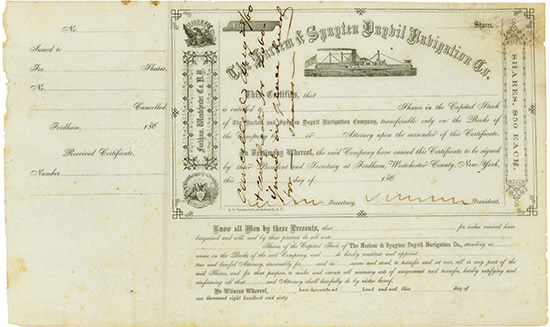 No.
Issued to
For Shares,
No.
Cancelled
Fordham, 186
Received Certificate,
Number
No. Shares.
The Harlem & Spuyten Duyvil Navigation Co.
Fordham, Westchester Co. N.Y.
SHARES, $50 EACH.
This Certifies, that
is entitled to Shares in the Capital Stock
of The Harlem and Spuyten Duyvil Navigation Company, transferable only on the Books of
the Company by or Attorney upon the surrender of this Certificate.
In Testimony Whereof, the said Company have caused this Certificate to be signed
by their President and Secretary at Fordham, Westchester County, New-York,
this day of 186
Secretary. President.
Know all Men by these Presents, that for value received have
bargained and sold, and by these presents do sell unto
Shares of the Capital Stock of The Harlem & Spuyten Duyvil Navigation Co., standing in
name on the Books of the said Company, and do hereby constitute and appoint
true and lawful Attorney, irrevocable for and in name and stead, to transfer and set over, all or any part of the
said Shares, and for that purpose, to make and execute all necessary acts of assignment and transfer, hereby ratifying and
confirming all that said Attorney shall lawfully do by virtue hereof.
In Witness Whereof, have hereunto set hand and seal this day of
one thousand eight hundred and sixty